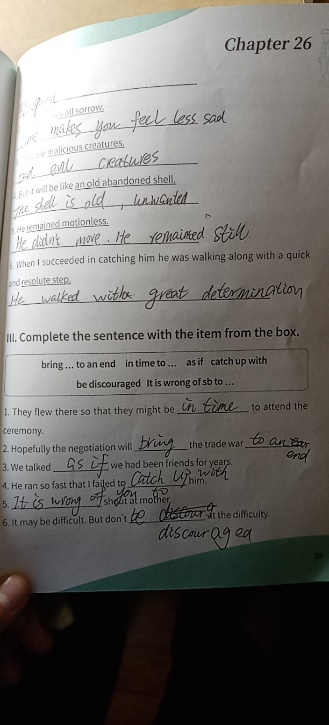 Chapter 26
all sorrow.
makes you feel less sad
malicious creatures.
evil creatures
But it will be like an old abandoned shell.
The shell is old , unwanted
He remained motionless.
He didn't move. He remainted still
When I succeeded in catching him he was walking along with a quick
and resolute step.
He walked with great determination
III. Complete the sentence with the item from the box.
bring ... to an end in time to ... as if catch up with
be discouraged It is wrong of sb to ...
1. They flew there so that they might be in time to attend the
ceremony.
2. Hopefully the negotiation will bring the trade war to an end
3. We talked as if we had been friends for years.
4. He ran so fast that I failed to Catch up with him.
5. It is wrong of you to shout at mother.
6. It may be difficult. But don't be discouraged at the difficulty.